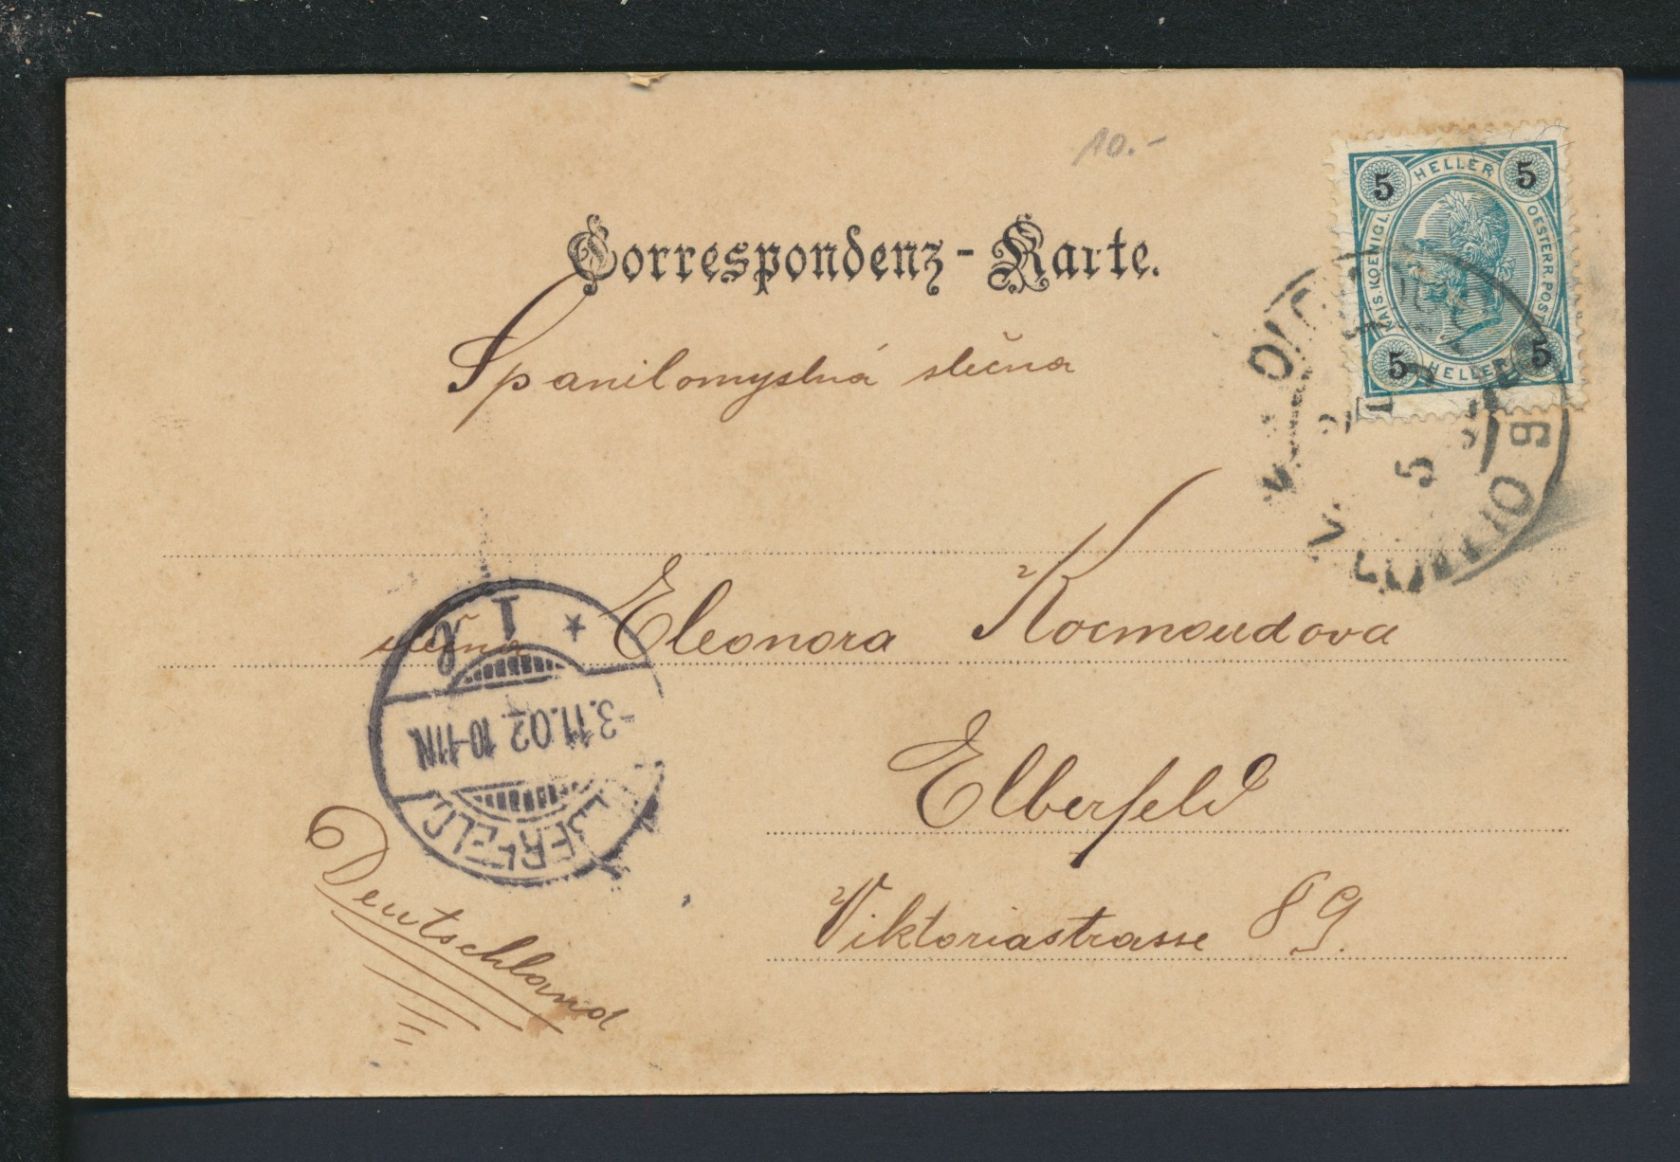 10.-
Correspondenz-Karte.
5 HELLER 5
KAIS. KOENIGL. OESTERR. POST
5 HELLER 5
Spanilomyslná slečna
5
slečna Eleonora Kocmoudova
1 *
-3.11.02. 10-11N.
ELBERFELD
Elberfeld
Viktoriastrasse 89.
Deutschland